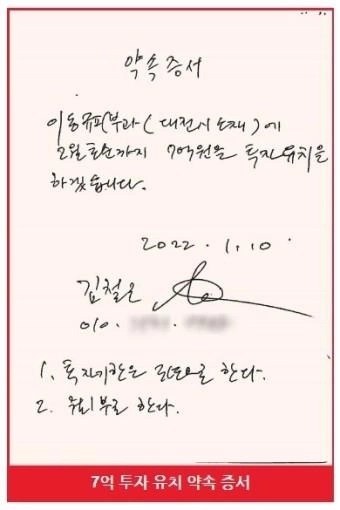 약속 증서
이동규피부과 (대전시 소재) 에
2월 초순까지 7억원을 투자유치를
하겠습니다.
2022. 1. 10
김철은
010.
1. 투자기간은 으로 한다.
2. 부로 한다.
7억 투자 유치 약속 증서